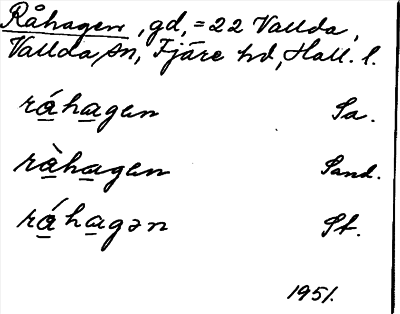 Råhagen, gd, = 22 Vallda,
Vallda sn, Fjäre hd, Hall. l.
ráhagen Sa.
ràhagen Sand.
ráhagən St.
1951.